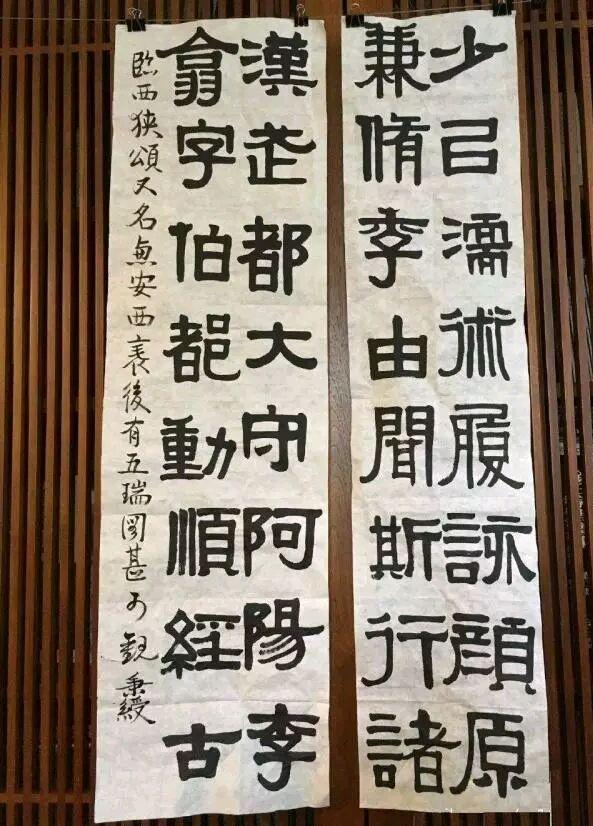 少㠯濡術履詠顏原
兼脩季由聞斯行諸
漢武都大守阿陽李
翕字伯都動順經古
臨西狹頌又名惠安西表後有五瑞圖甚可觀 秉綬